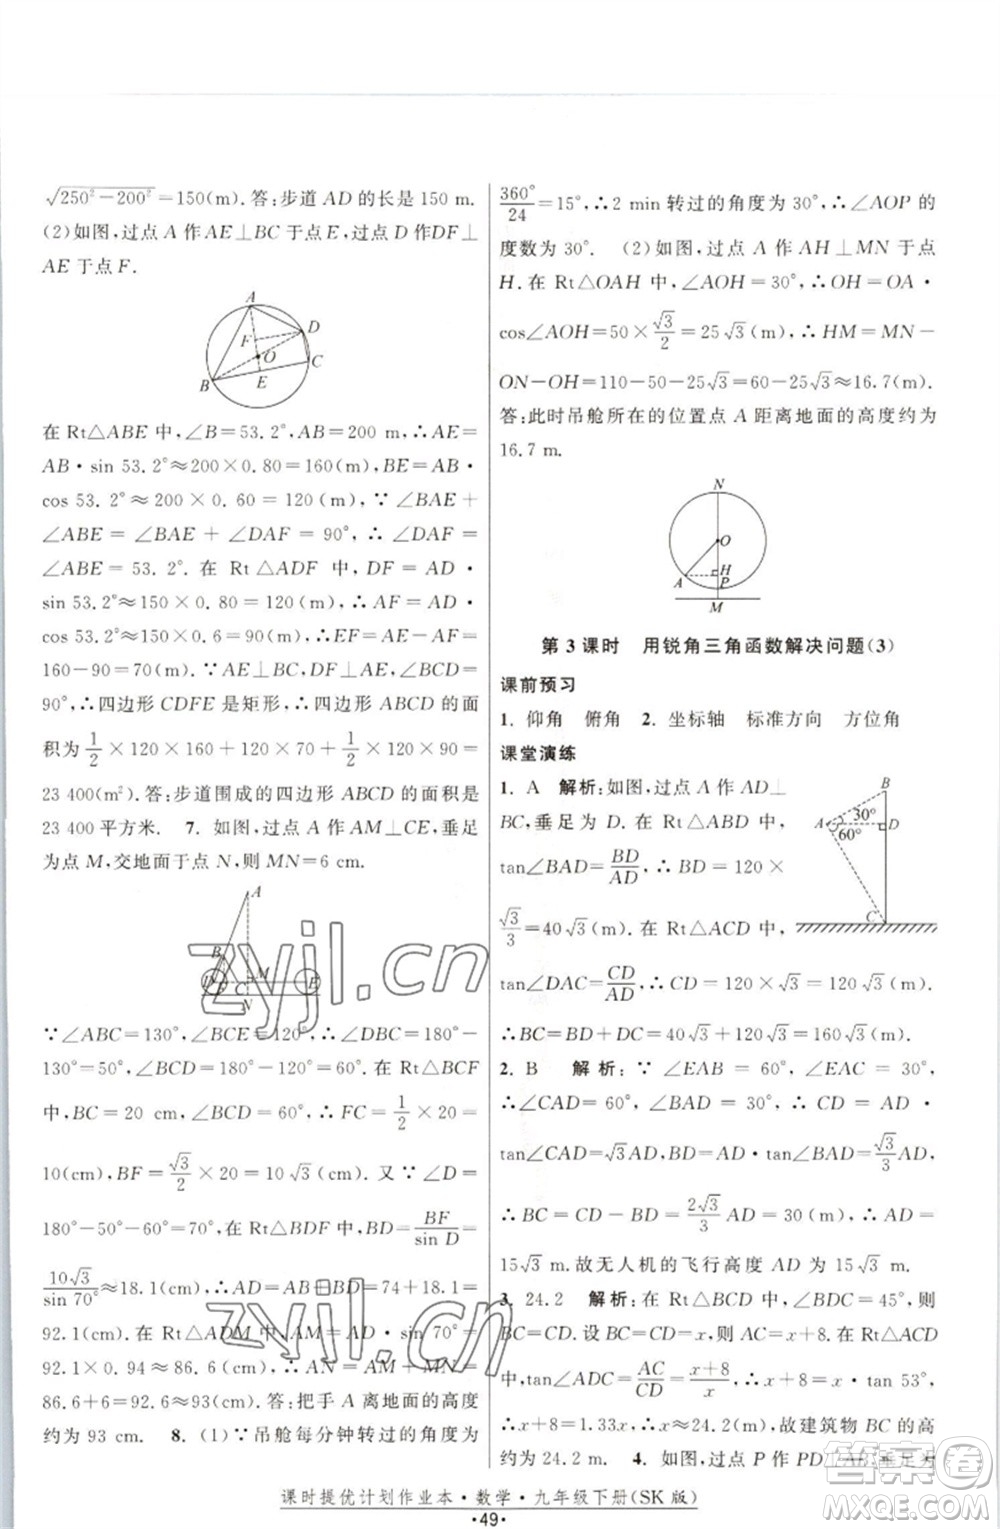 √(250²－200²)＝150(m). 答:步道 AD 的长是 150 m.
(2)如图,过点 A 作 AE⊥BC 于点 E,过点 D 作DF⊥
AE 于点 F.
A
D
F
O
C
B
E
在 Rt△ABE 中,∠B＝53. 2°,AB＝200 m,∴AE＝
AB·sin 53. 2°≈200×0. 80＝160(m),BE＝AB·
cos 53. 2°≈200×0. 60＝120(m). ∵∠BAE＋
∠ABE＝∠BAE＋∠DAF＝90°,∴∠DAF＝
∠ABE＝53. 2°. 在 Rt△ADF 中,DF＝AD·
sin 53.2°≈150×0. 80＝120(m),∴AF＝AD·
cos 53.2°≈150×0.60＝90(m),∴EF＝AE－AF＝
160－90＝70(m). ∵AE⊥BC,DF⊥AE,∠C＝
90°,∴四边形 CDFE 是矩形,∴四边形 ABCD 的面
积为1/2×120×160＋120×70＋1/2×120×90＝
23 400(m²). 答:步道围成的四边形 ABCD 的面积为
23 400平方米. 7. 如图,过点 A 作AM⊥CE,垂足
为点 M,交地面于点 N,则 MN＝6 cm.
A
B
D F C M E
N
∵∠ABC＝130°,∠BCE＝120°,∴∠DBC＝180°－
130°＝50°,∠BCD＝180°－120°＝60°. 在 Rt△BCF
中,BC＝20 cm,∠BCD＝60°,∴FC＝1/2×20＝
10(cm),BF＝√3/2×20＝10√3(cm). 又∵∠D＝
180°－50°－60°＝70°,在 Rt△BDF 中,BD＝BF/sin D＝
10√3/sin 70°≈18.1(cm),∴AD＝AB＋BD＝74＋18.1＝
92.1(cm). 在 Rt△ADM 中,AM＝AD·sin 70°≈
92.1×0.94≈86.6(cm),∴AN＝AM＋MN＝
86.6＋6≈93(cm). 答:把手 A 离地面的高度
约为 93 cm. 8. (1)∵吊舱每分钟转过的角度为
360°/24＝15°,∴2 min 转过的角度为 30°,∴∠AOP 的
度数为 30°. (2)如图,过点 A 作 AH⊥MN 于点
H. 在 Rt△OAH 中,∠AOH＝30°,∴OH＝OA·
cos∠AOH＝50×√3/2＝25√3(m),∴HM＝MN－
ON－OH＝110－50－25√3＝60－25√3≈16.7(m).
答:此时吊舱所在的位置点 A 距离地面的高度约为
16.7 m.
N
O
A H
P
M
第 3 课时 用锐角三角函数解决问题(3)
课前预习
1. 仰角 俯角 2. 坐标轴 标准方向 方位角
课堂演练
1. A 解析:如图,过点 A 作 AD⊥
BC,垂足为 D. 在 Rt△ABD 中,
tan∠BAD＝BD/AD,∴BD＝120×
√3/3＝40√3(m). 在 Rt△ACD 中,
B
A 30° D
60°
C
tan∠DAC＝CD/AD,∴CD＝120×√3＝120√3(m).
∴BC＝BD＋DC＝40√3＋120√3＝160√3(m).
2. B 解析:∵∠EAB＝60°,∠EAC＝30°,
∴∠CAD＝60°,∠BAD＝30°,∴CD＝AD·
tan∠CAD＝√3AD,BD＝AD·tan∠BAD＝√3/3AD,
∴BC＝CD－BD＝2√3/3AD＝30(m),∴AD＝
15√3 m. 故无人机的飞行高度 AD 为 15√3 m.
3. 24.2 解析:在 Rt△BCD 中,∠BDC＝45°,则
BC＝CD. 设 BC＝CD＝x,则 AC＝x＋8. 在 Rt△ACD
中,tan∠ADC＝AC/CD＝(x＋8)/x,则 x＋8＝x·tan 53°,
∴x＋8＝1.33x,∴x≈24.2(m),故建筑物 BC 的高
约为 24.2 m. 4. 如图,过点 P 作 PD⊥AB,垂足为
课时提优计划作业本·数学·九年级下册(SK 版)
·49·
zyjl.cn
zyjl.cn
答案圈
MXQE.COM